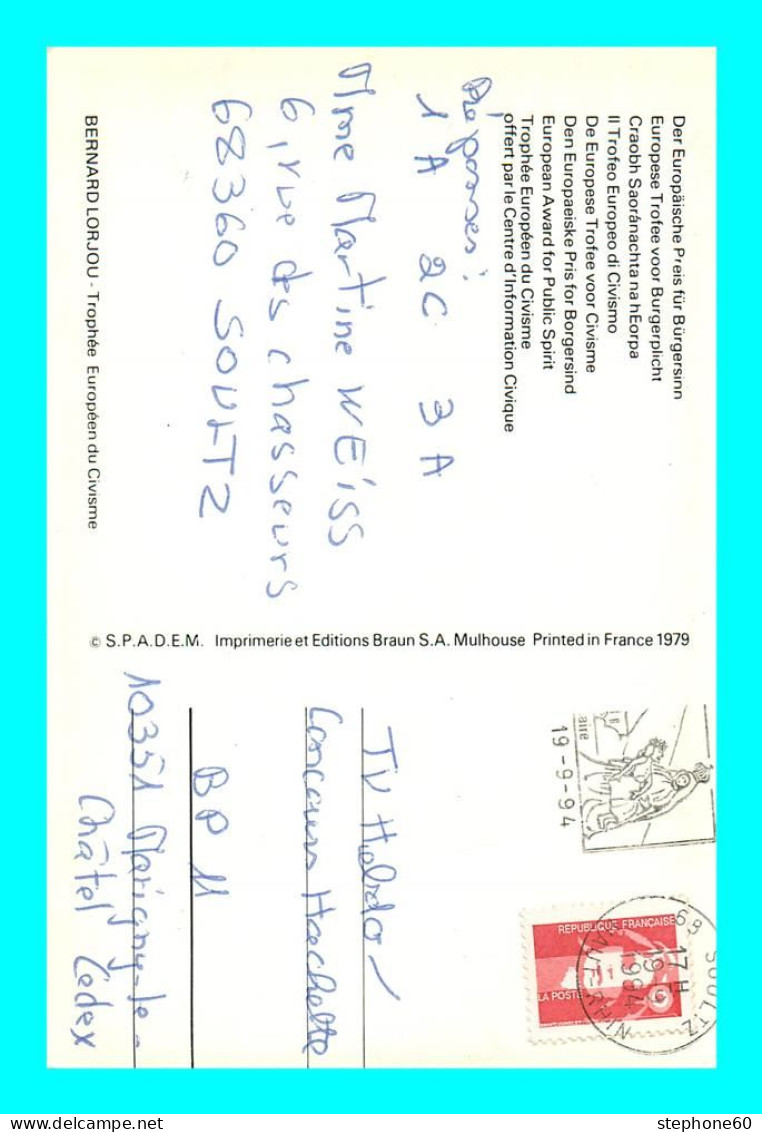 Der Europäische Preis für Bürgersinn
Europese Trofee voor Burgerplicht
Craobh Saoránachta na hEorpa
Il Trofeo Europeo di Civismo
De Europese Trofee voor Civisme
Den Europaeiske Pris for Borgersind
European Award for Public Spirit
Trophée Européen du Civisme
offert par le Centre d'Information Civique
Réponses:
1A 2C 3A
Mme Martine WEISS
6, rue des chasseurs
68360 SOULTZ
BERNARD LORJOU - Trophée Européen du Civisme
© S.P.A.D.E.M. Imprimerie et Editions Braun S.A. Mulhouse Printed in France 1979
19-9-94
REPUBLIQUE FRANÇAISE
LA POSTE
68 SOULTZ
17 H
19-9
1994
HAUT-RHIN
TV Hebdo
Concours Hachette
BP 11
10351 Marigny-le-
Châtel Cedex
stephone60